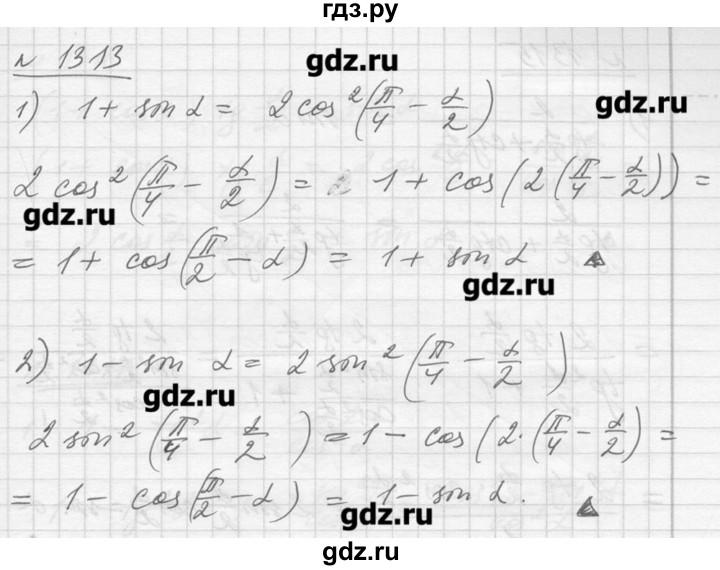 гдз.ру
№ 1313
gdz.ru
1) 1 + sin α = 2 cos²(π/4 − α/2)
gdz.ru
2 cos²(π/4 − α/2) = 1 + cos(2(π/4 − α/2)) =
gdz.ru
= 1 + cos(π/2 − α) = 1 + sin α ▲
gdz.ru
2) 1 − sin α = 2 sin²(π/4 − α/2)
gdz.ru
2 sin²(π/4 − α/2) = 1 − cos(2·(π/4 − α/2) =
= 1 − cos(π/2 − α) = 1 − sin α. ▲
gdz.ru
gdz.ru